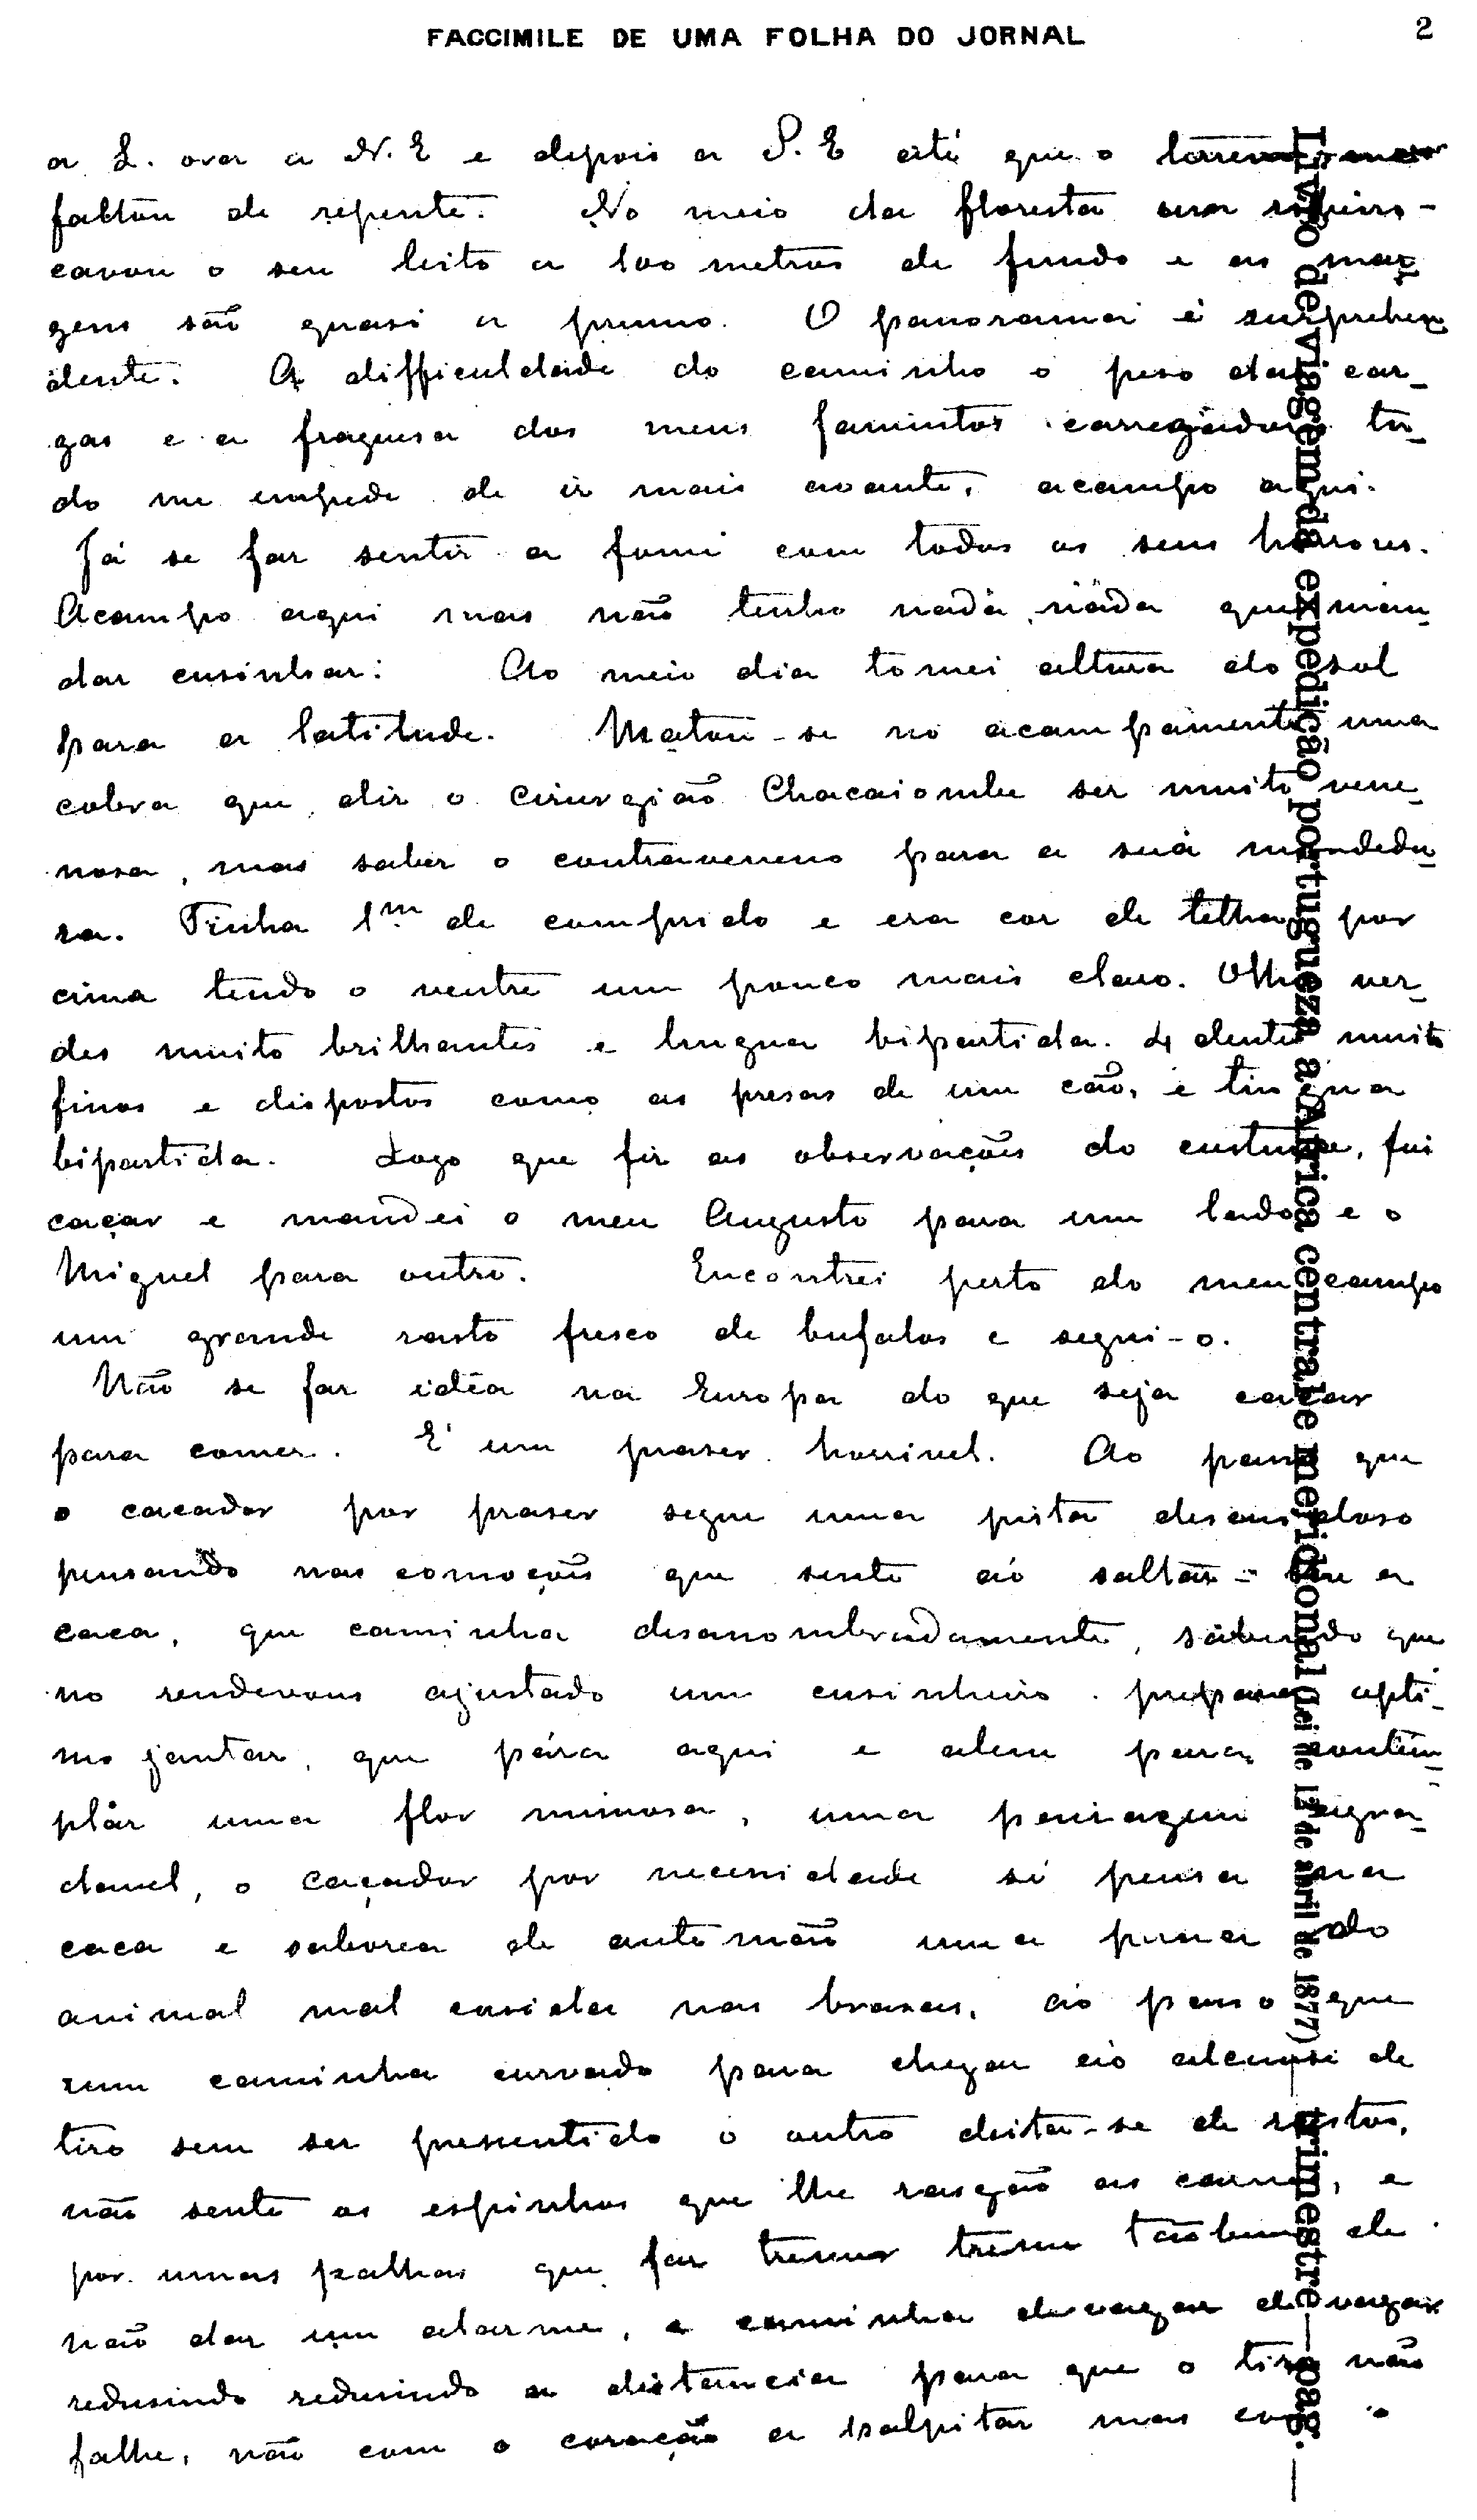 FACCIMILE DE UMA FOLHA DO JORNAL
2
a L. ora a N. E e depois a S. E até que o terreno
faltou de repente. No meio da floresta um
cavou o seu leito a 100 metros de fundo e as mar-
gens são quasi a prumo. O panorama é surprehen
dente. A difficuldade do caminho o peso das car-
gas e a fraquesa dos meus famintos carregadores tu-
do me impede de ir mais avante, acampo aqui.
Já se faz sentir a fome com todos os seus horrores.
Acampo aqui mas não tenho nada, nada que man-
dar cusinhar: Ao meio dia tomei altura do sol
para a latitude. Matou-se no acampamento uma
cobra que diz o cirurgião Chacaiombe ser muito vene-
nosa, mas saber o contraveneno para a sua mordedu-
ra. Tinha 1m de comprido e era cor de telha por
cima tendo o ventre um pouco mais claro. Olhos ver-
des muito brilhantes e lingua bipartida. 4 dentes muito
finos e dispostos como as presas de um cão, e lingua
bipartida. Logo que fiz as observações do custume, fui
caçar e mandei o meu Augusto para um lado e o
Miguel para outro. Encontrei perto do meu campo
um grande rasto fresco de bufalos e segui-o.
Não se faz idéa na Europa do que seja caçar
para comer. E' um praser horrivel. Ao passo que
o cacador por praser segue uma pista
pensando nas comoções que sente ao saltar-lhe a
caca, que caminha desassombradamente, sabendo que
no rendevous ajustado um cusinheiro prepara opti-
mo jantar, que pára aqui e alem para contem-
plár uma flor mimosa, uma paisagem agra-
davel, o caçador por necessidade só pensa na
caca e saborea de ante mão uma perna do
animal mal cosida nas brasas, ao passo que
um caminha curvado para chegar ao alcance de
tiro sem ser presentido o outro deita-se de rastos,
não sente os espinhos que lhe rasgão as carnes, e
por umas palhas que faz tremer treme tãobem de
não dar um alarme, e caminha devagar devagar
redusindo redusindo a distancia para que o tiro não
falhe, não com o coração a palpitar mas com o
Livro de viagem da expedição portugueza a Africa central e meridional (Lei de 12 de abril de 1877) — trimestre — pag. —